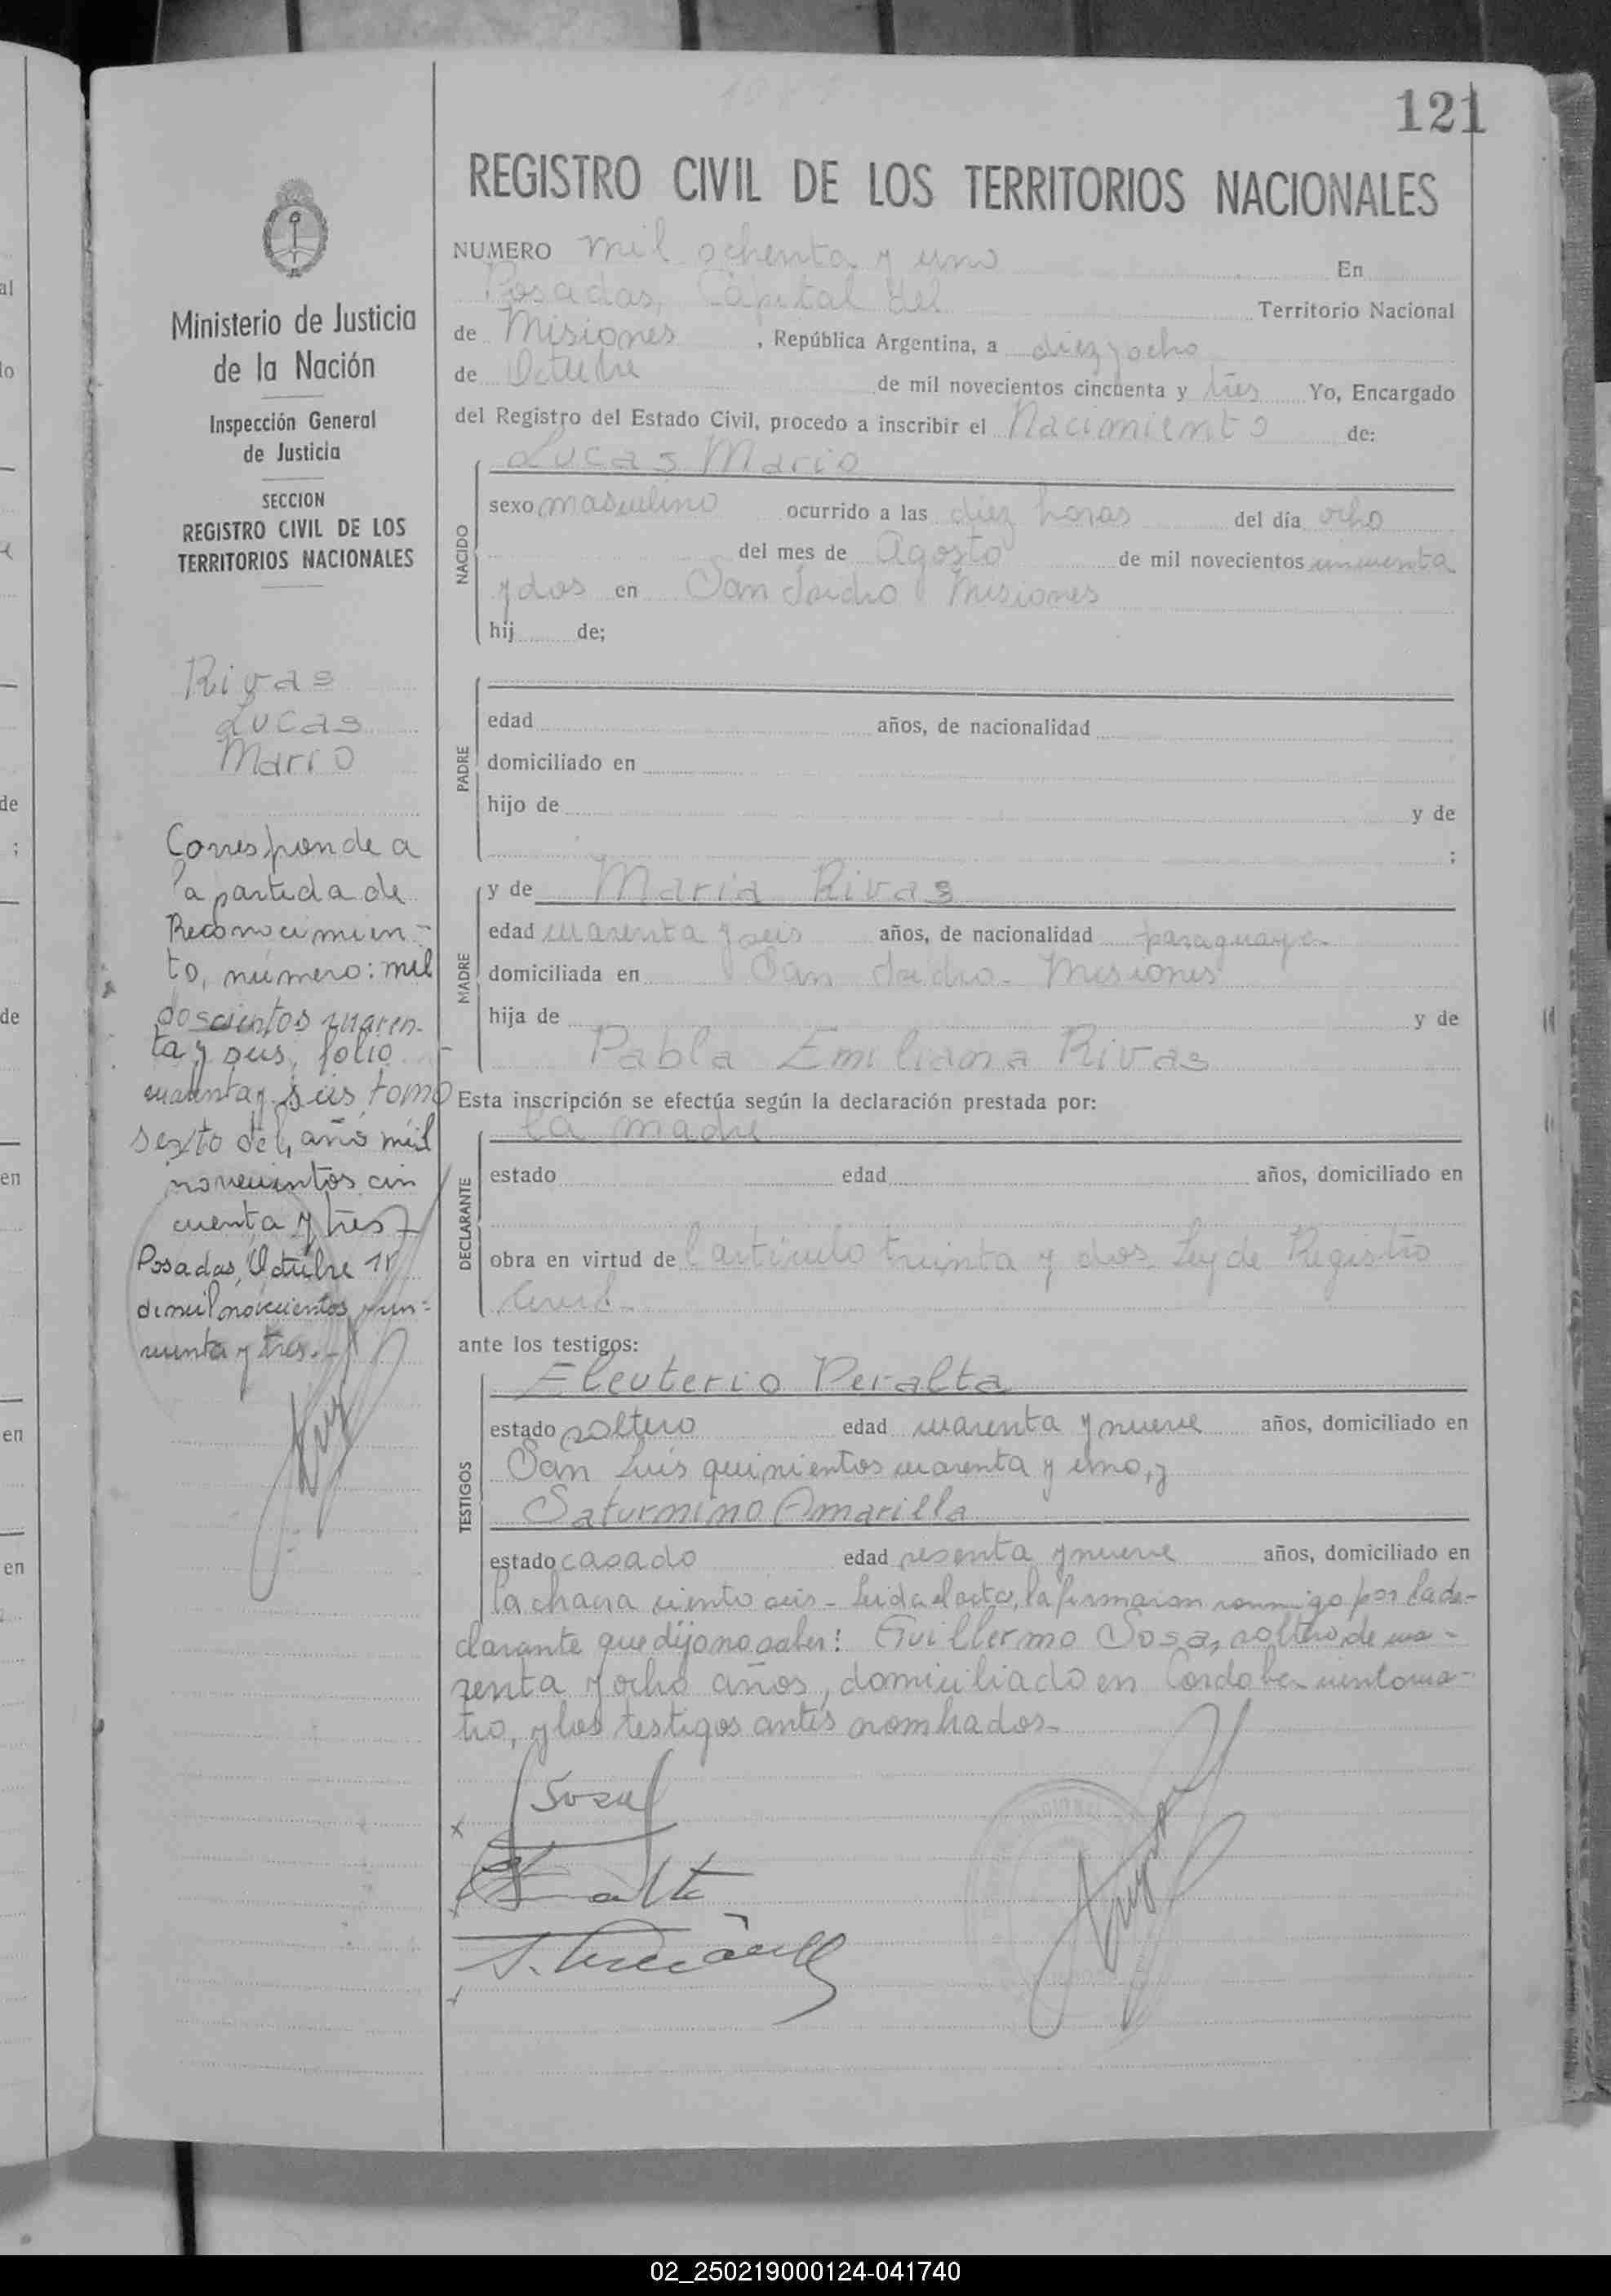 121
REGISTRO CIVIL DE LOS TERRITORIOS NACIONALES
NUMERO mil ochenta y uno En
Posadas, Capital del Territorio Nacional
de Misiones, República Argentina, a diez y ocho
de Octubre de mil novecientos cincuenta y tres Yo, Encargado
del Registro del Estado Civil, procedo a inscribir el Nacimiento de:
NACIDO
Lucas Mario
sexo masculino ocurrido a las diez horas del día ocho
del mes de Agosto de mil novecientos cincuenta
y dos en San Isidro Misiones
hij de;
PADRE
edad años, de nacionalidad
domiciliado en
hijo de y de
;
MADRE
y de Maria Rivas
edad cuarenta y seis años, de nacionalidad paraguaya
domiciliada en San Isidro - Misiones
hija de y de
Pabla Emiliana Rivas
Esta inscripción se efectúa según la declaración prestada por:
DECLARANTE
la madre
estado edad años, domiciliado en
obra en virtud del artículo treinta y dos Ley de Registro
Civil.
ante los testigos:
TESTIGOS
Eleuterio Peralta
estado soltero edad cuarenta y nueve años, domiciliado en
San Luis quinientos cuarenta y uno, y
Saturnino Amarilla
estado casado edad sesenta y nueve años, domiciliado en
la chacra ciento seis - Leida el acta, la firmaron conmigo por la de-
clarante que dijo no saber: Guillermo Sosa, soltero, de cua-
renta y ocho años, domiciliado en Cordoba ciento cua-
tro, y los testigos antes nombrados.
Sosa
Ministerio de Justicia
de la Nación
Inspección General
de Justicia
SECCION
REGISTRO CIVIL DE LOS
TERRITORIOS NACIONALES
Rivas
Lucas
Mario
Corresponde a
la partida de
Reconocimien-
to, número: mil
doscientos cuaren-
ta y seis, folio
cuarenta y seis, tomo
sexto del año mil
novecientos cin
cuenta y tres
Posadas, Octubre
de mil novecientos cin-
cuenta y tres.-
02_250219000124-041740